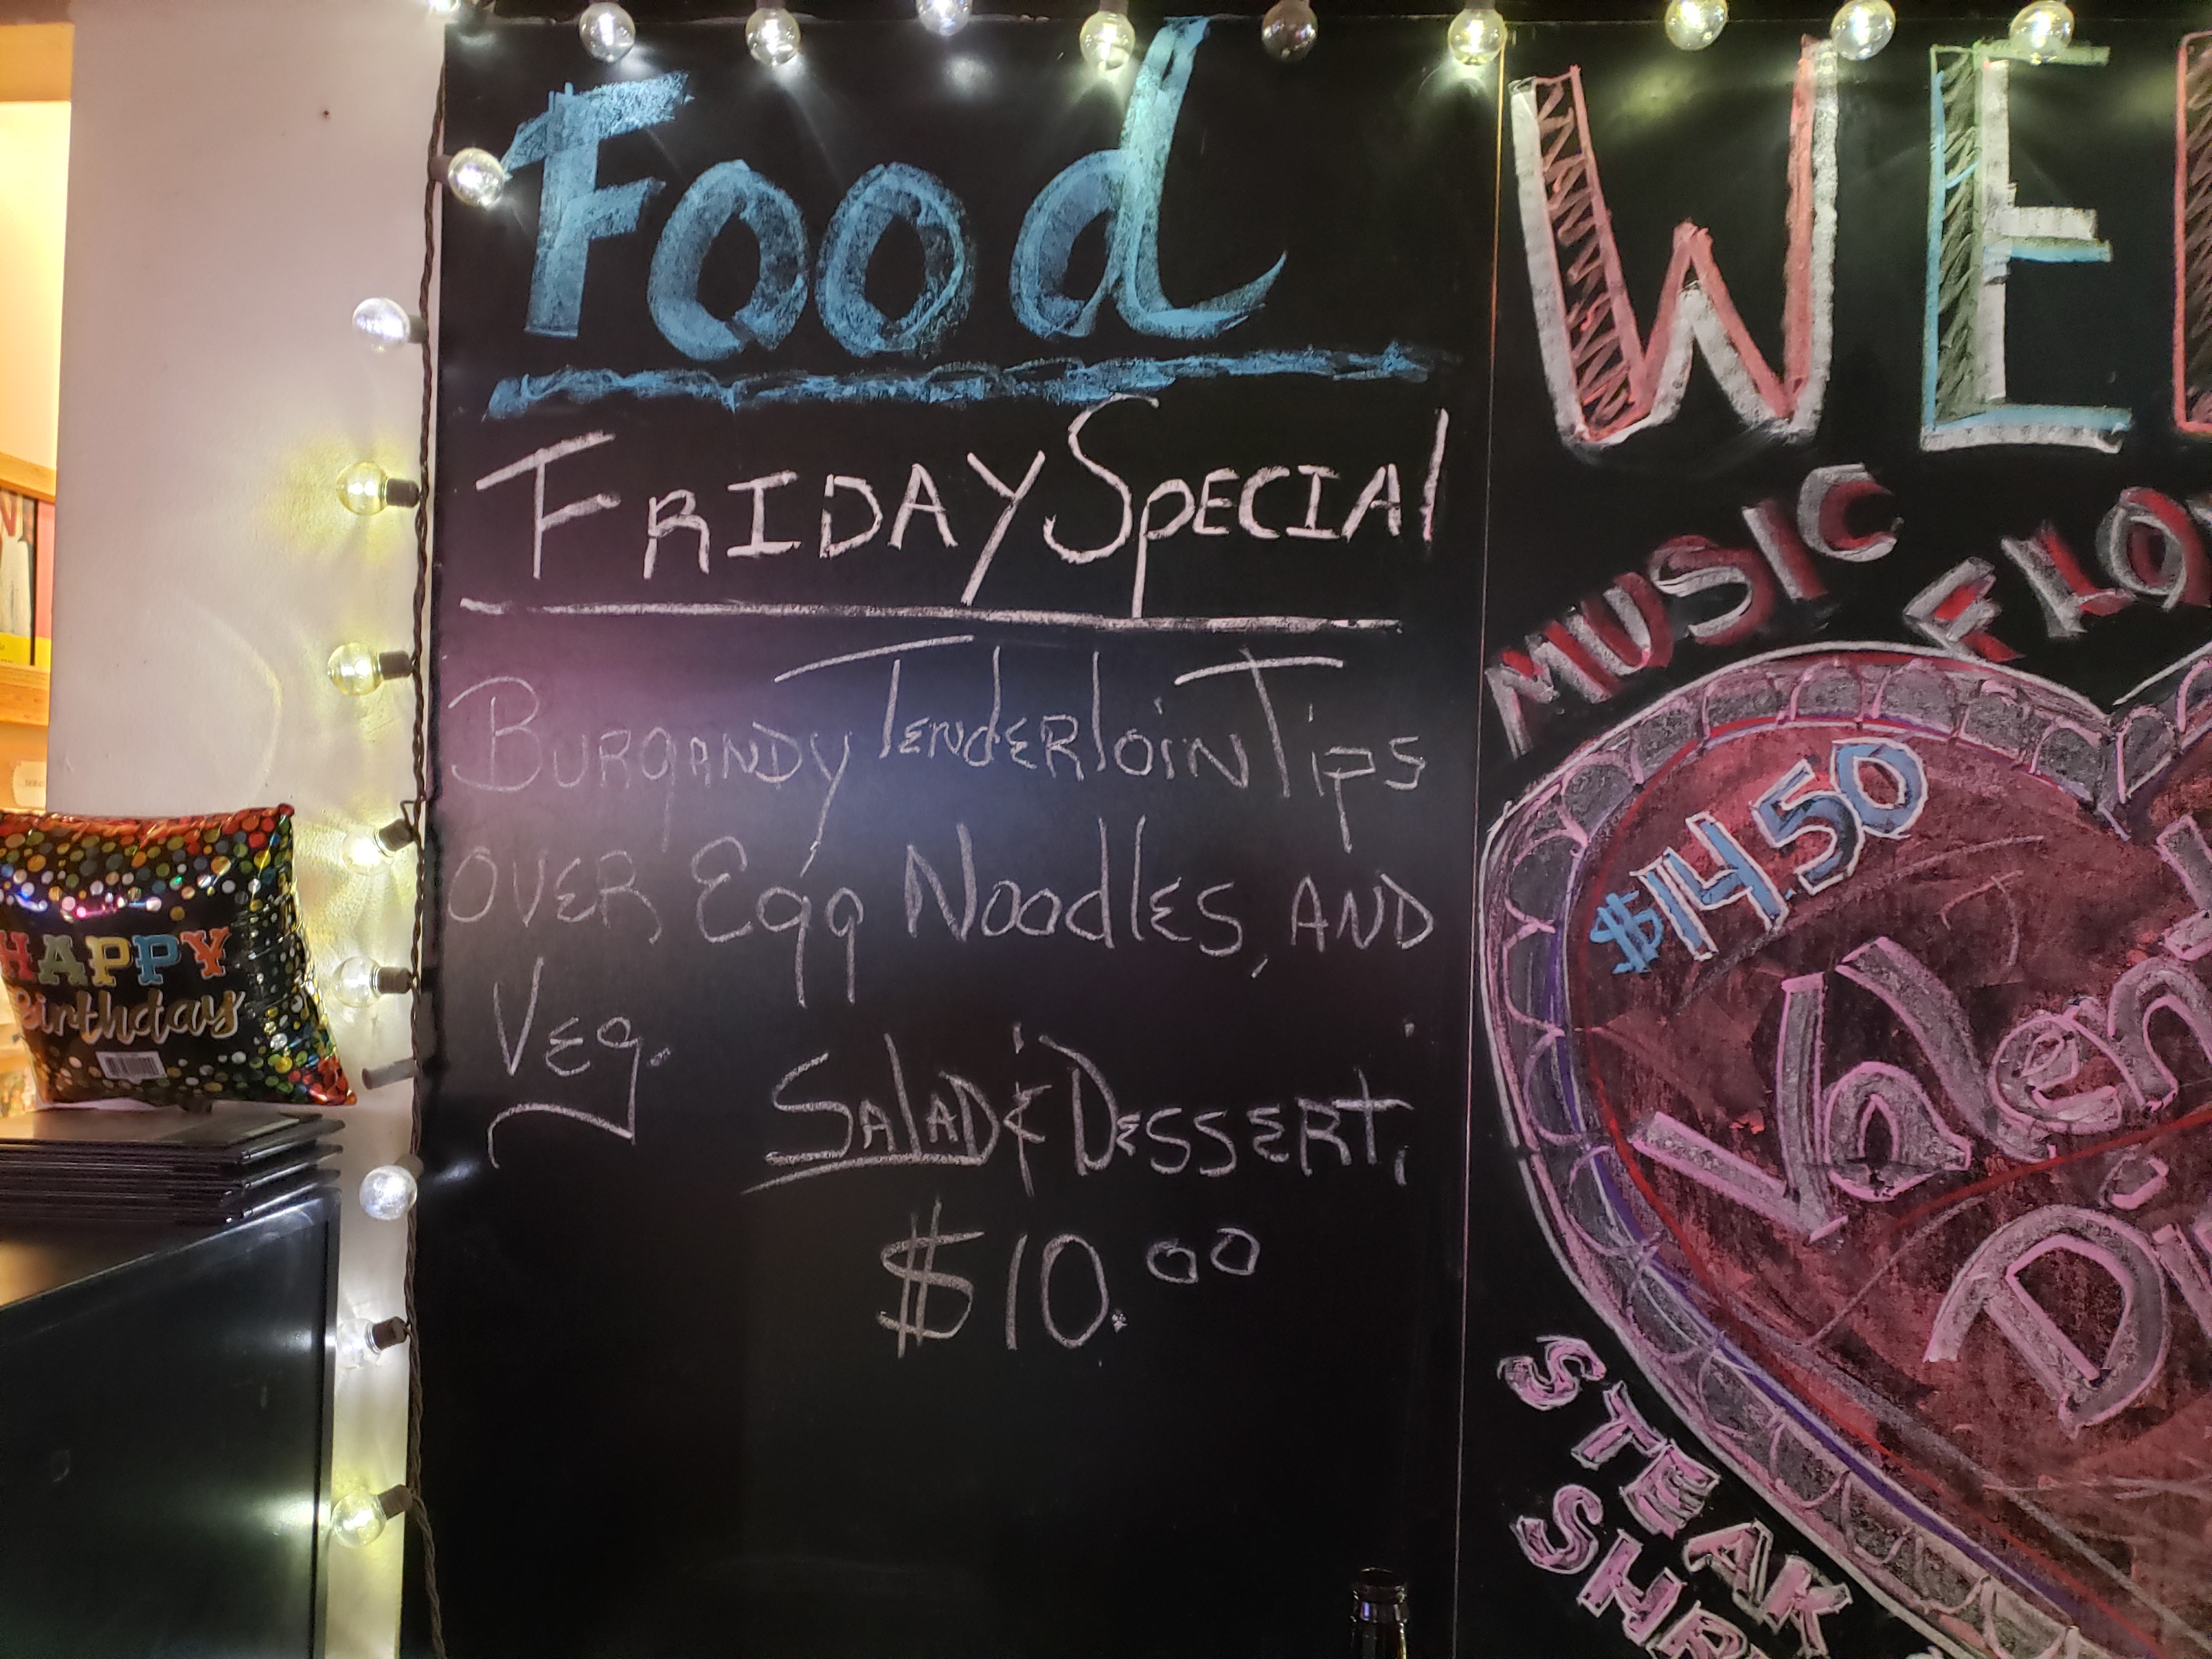 Food
FRIDAY SPECIAL
BURGANDY TENDERLOIN TIPS
OVER EGG NOODLES, AND
VEG.
SALAD & DESSERT,
$10.00
WE
MUSIC
$14.50
STEAK
HAPPY
Birthday